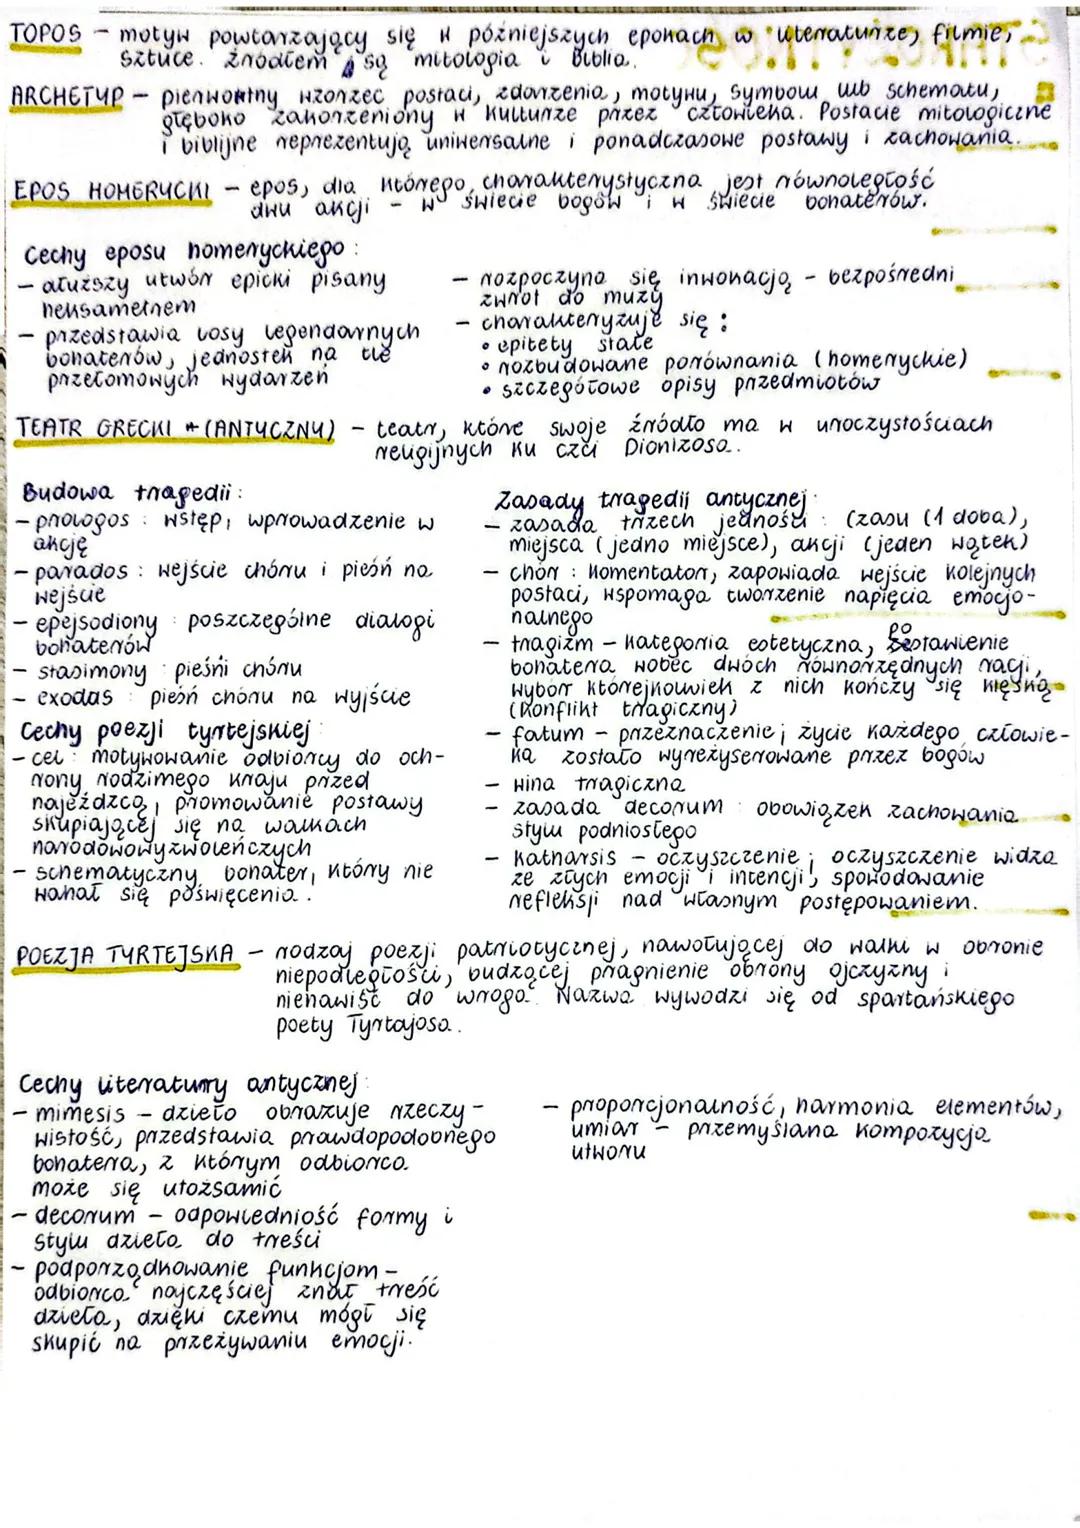 TOPOS - motyw powtarzający się w późniejszych epokach w literaturze, filmie,
sztuce. źródłem są mitologia i Biblia.
ARCHETYP - pierwotny wzorzec postaci, zdarzenia, motywu, symbolu lub schematu,
głęboko zakorzeniony w kulturze przez człowieka. Postacie mitologiczne
i biblijne reprezentują uniwersalne i ponadczasowe postawy i zachowania.
EPOS HOMERYCKI - epos, dla którego charakterystyczna jest równoległość
dwu akcji - w świecie bogów i w świecie bohaterów.
Cechy eposu homeryckiego:
- dłuższy utwór epicki pisany
heksametrem
- przedstawia losy legendarnych
bohaterów, jednostek na tle
przełomowych wydarzeń
- rozpoczyna się inwokacją - bezpośredni
zwrot do muzy
- charakteryzuje się:
• epitety stałe
• rozbudowane porównania (homeryckie)
• szczegółowe opisy przedmiotów
TEATR GRECKI (ANTYCZNY) - teatr, które swoje źródło ma w uroczystościach
religijnych ku czci Dionizosa.
Budowa tragedii:
- prologos: wstęp, wprowadzenie w
akcję
- parados: wejście chóru i pieśń na
wejście
- epejsodiony: poszczególne dialogi
bohaterów
- stasimony: pieśni chóru
- exodas: pieśń chóru na wyjście
Cechy poezji tyrtejskiej:
- cel: motywowanie odbiorcy do och-
rony rodzimego kraju przed
najeźdzcą, promowanie postawy
skupiającej się na walkach
narodowowyzwoleńczych
- schematyczny bohater, który nie
wahał się poświęcenia.
Zasady tragedii antycznej:
- zasada trzech jedności: czasu (1 doba),
miejsca (jedno miejsce), akcji (jeden wątek)
- chór: komentator, zapowiada wejście kolejnych
postaci, wspomaga tworzenie napięcia emocjo-
nalnego
- tragizm - kategoria estetyczna, postawienie
bohatera wobec dwóch równorzędnych racji,
wybór którejkolwiek z nich kończy się klęską
(konflikt tragiczny)
- fatum - przeznaczenie; życie każdego człowie-
ka zostało wyreżyserowane przez bogów
- wina tragiczna
- zasada decorum: obowiązek zachowania
stylu podniosłego
- katharsis - oczyszczenie; oczyszczenie widza
ze złych emocji i intencji, spowodowanie
refleksji nad własnym postępowaniem.
POEZJA TYRTEJSKA - rodzaj poezji patriotycznej, nawołującej do walki w obronie
niepodległości, budzącej pragnienie obrony ojczyzny i
nienawiść do wroga. Nazwa wywodzi się od spartańskiego
poety Tyrtajosa.
Cechy literatury antycznej:
- mimesis - dzieło obrazuje rzeczy-
wistość, przedstawia prawdopodobnego
bohatera, z którym odbiorca
może się utożsamić
- decorum - odpowiedniość formy i
stylu dzieła do treści
- podporządkowanie funkcjom -
odbiorca najczęściej znał treść
dzieła, dzięki czemu mógł się
skupić na przeżywaniu emocji.
- proporcjonalność, harmonia elementów,
umiar - przemyślana kompozycja
utworu